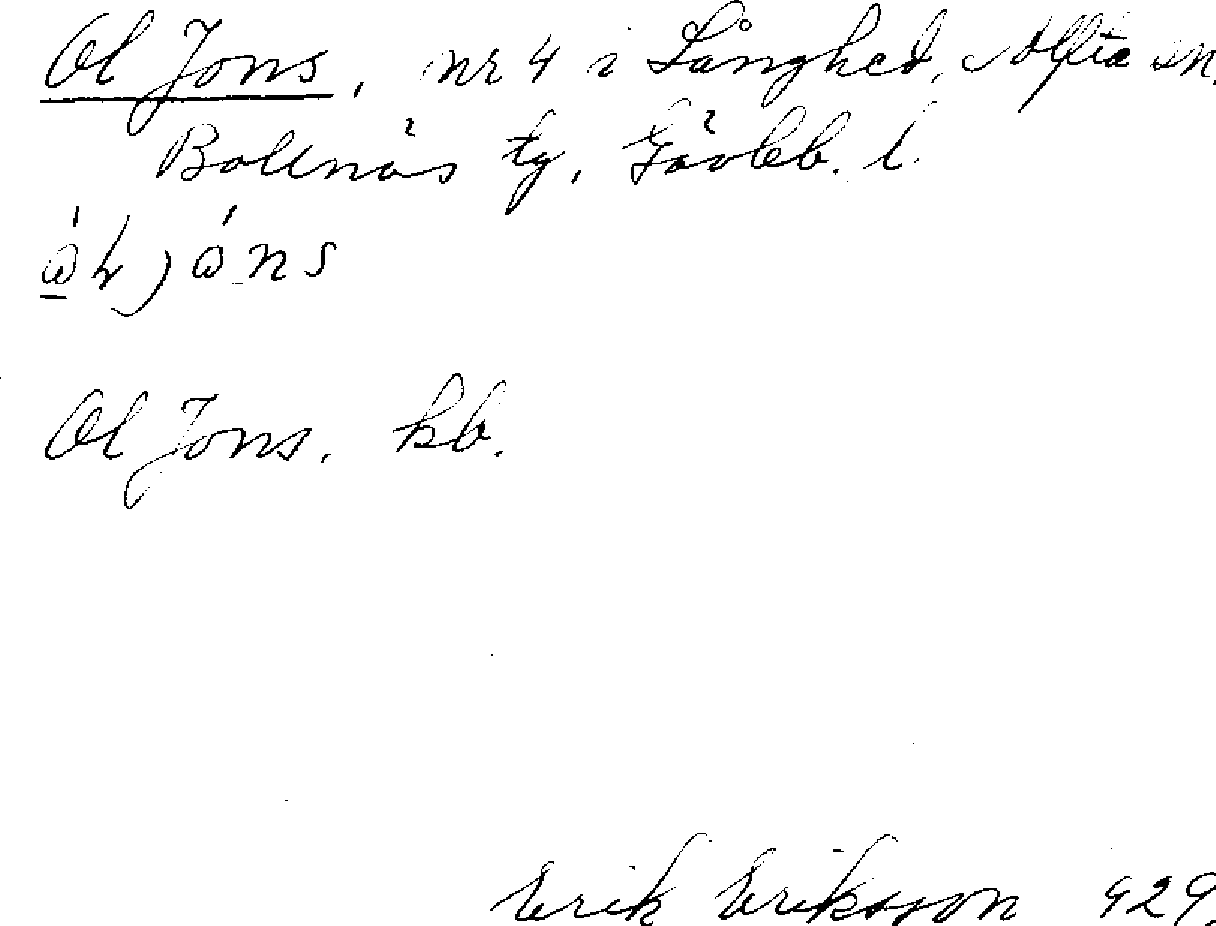 Ol Jons, nr 4 i Långhed, Alfta sn,
Bollnäs tg, Gävleb. l.
Ol Jons. kb.
Erik Eriksson 929.